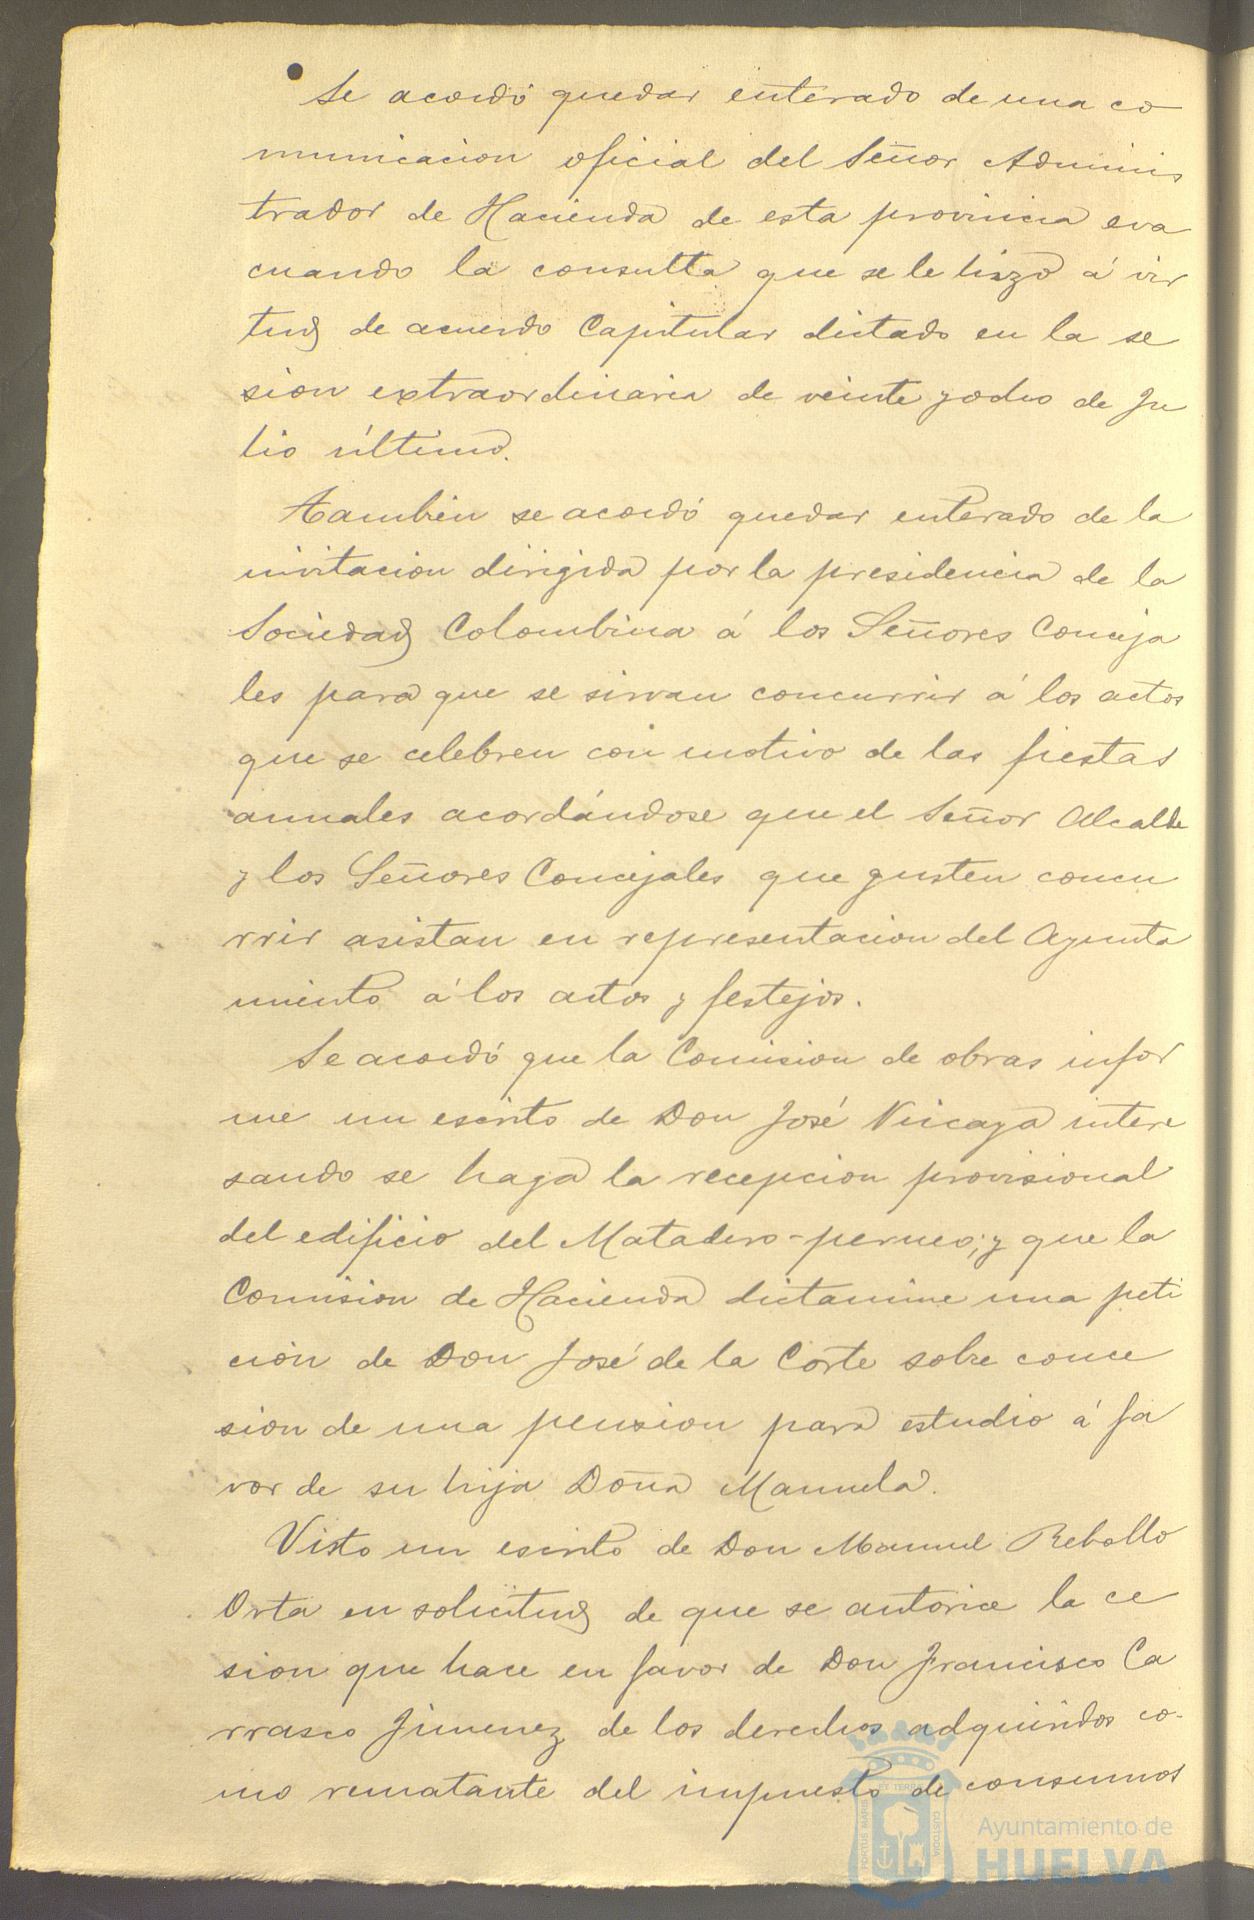 Se acordó quedar enterado de una co
municacion oficial del Señor Adminis
trador de Hacienda de esta provincia eva
cuando la consulta que se le hizo á vir
tud de acuerdo Capitular dictado en la se
sion extraordinaria de veinte y ocho de Ju
lio último.
Tambien se acordó quedar enterado de la
invitacion dirigida por la presidencia de la
Sociedad Colombina á los Señores Conceja
les para que se sirvan concurrir á los actos
que se celebren con motivo de las fiestas
anuales acordándose que el Señor Alcalde
y los Señores Concejales que gusten concu
rrir asistan en representacion del Ayunta
miento á los actos y festejos.
Se acordó que la Comision de obras infor
me un escrito de Don José Vizcaya intere
sando se haga la recepcion provisional
del edificio del Matadero-perneo; y que la
Comision de Hacienda dictamine una peti
ción de Don José de la Corte sobre conce
sion de una pension para estudio á fa
vor de su hija Doña Manuela.
Visto un escrito de Don Manuel Rebollo
Orta en solicitud de que se autorice la ce
sion que hace en favor de Don Francisco Ca
rrasco Jimenez de los derechos adquiridos co-
mo rematante del impuesto de consumos
PORTUS MARIS ET TERRAE CUSTODIA
Ayuntamiento de
HUELVA